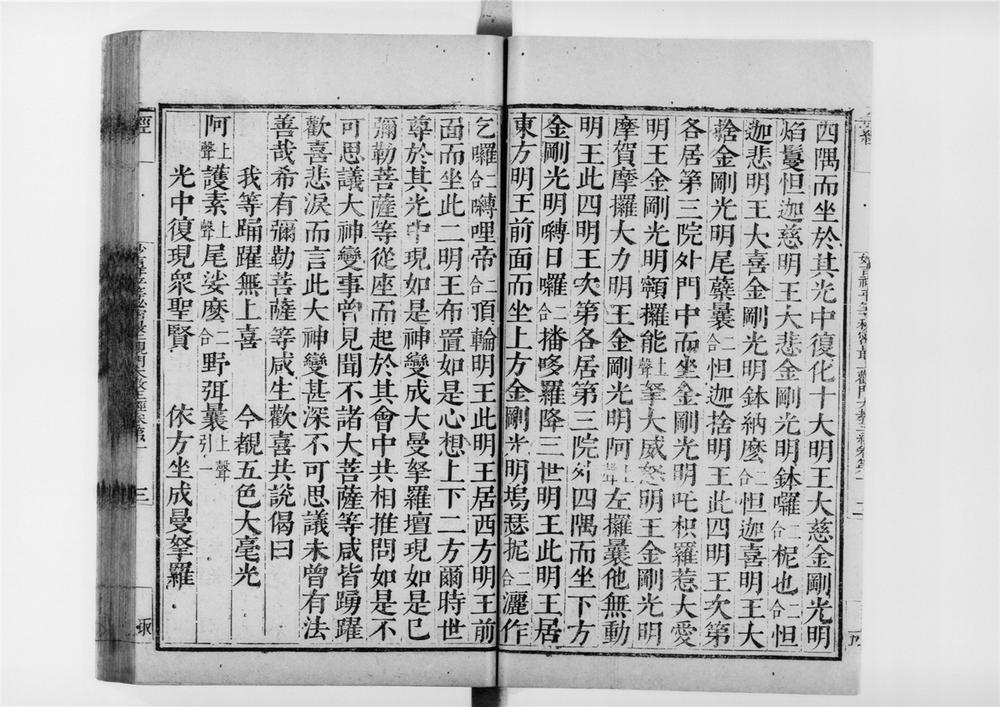 四隅而坐於其光中復化十大明王大慈金剛光明
焰鬘怛迦慈明王大悲金剛光明鉢囉二合枳也二合怛
迦悲明王大喜金剛光明鉢納麼二合怛迦喜明王大
捨金剛光明尾蘗曩二合怛迦捨明王此四明王次第
各居第三院外門中而坐金剛光明吒枳羅惹大愛
明王金剛光明儞攞能上聲拏大威怒明王金剛光明
摩賀摩攞大力明王金剛光明阿上聲左攞曩他無動
明王此四明王次第各居第三院外四隅而坐下方
金剛光明嚩日囉二合播哆羅降三世明王此明王居
東方明王前面而坐上方金剛光明塢瑟抳二合灑作
乞囉二合嚩哩帝二合頂輪明王此明王居西方明王前
面而坐此二明王布置如是心想上下二方爾時世
尊於其光中現如是神變成大曼拏羅壇現如是已
彌勒菩薩等從座而起於其會中共相推問如是不
可思議大神變事曾見聞不諸大菩薩等咸皆踴躍
歡喜悲淚而言此大神變甚深不可思議未曾有法
善哉希有彌勒菩薩等咸生歡喜共說偈曰
我等踊躍無上喜 今覩五色大毫光
阿上聲護素上聲尾娑麼二合野弭曩上聲引一
光中復現眾聖賢 依方坐成曼拏羅
經
三
二